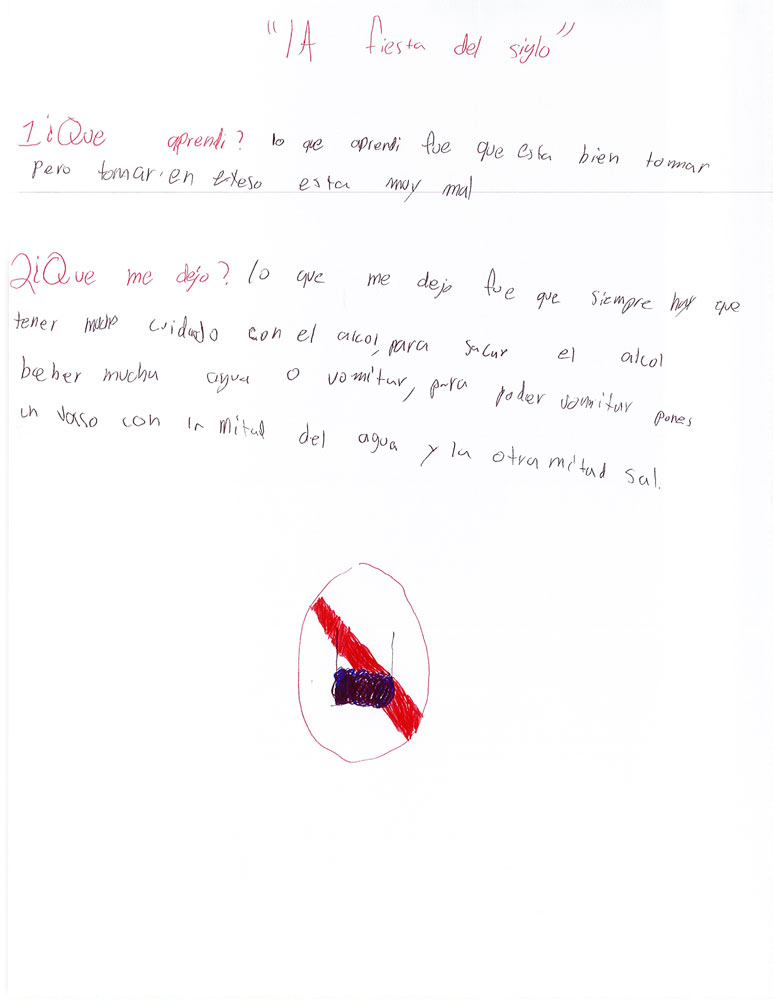 "lA fiesta del siglo"
1¿Que aprendi? lo que aprendi fue que esta bien tommar
Pero tomar en exeso esta muy mal
2¿Que me dejo? lo que me dejo fue que siempre hay que
tener mucho cuidado con el alcol, para sacar el alcol
beber mucha agua o vomitar, para poder vomitar pones
un vaso con la mital del agua y la otra mitad sal.